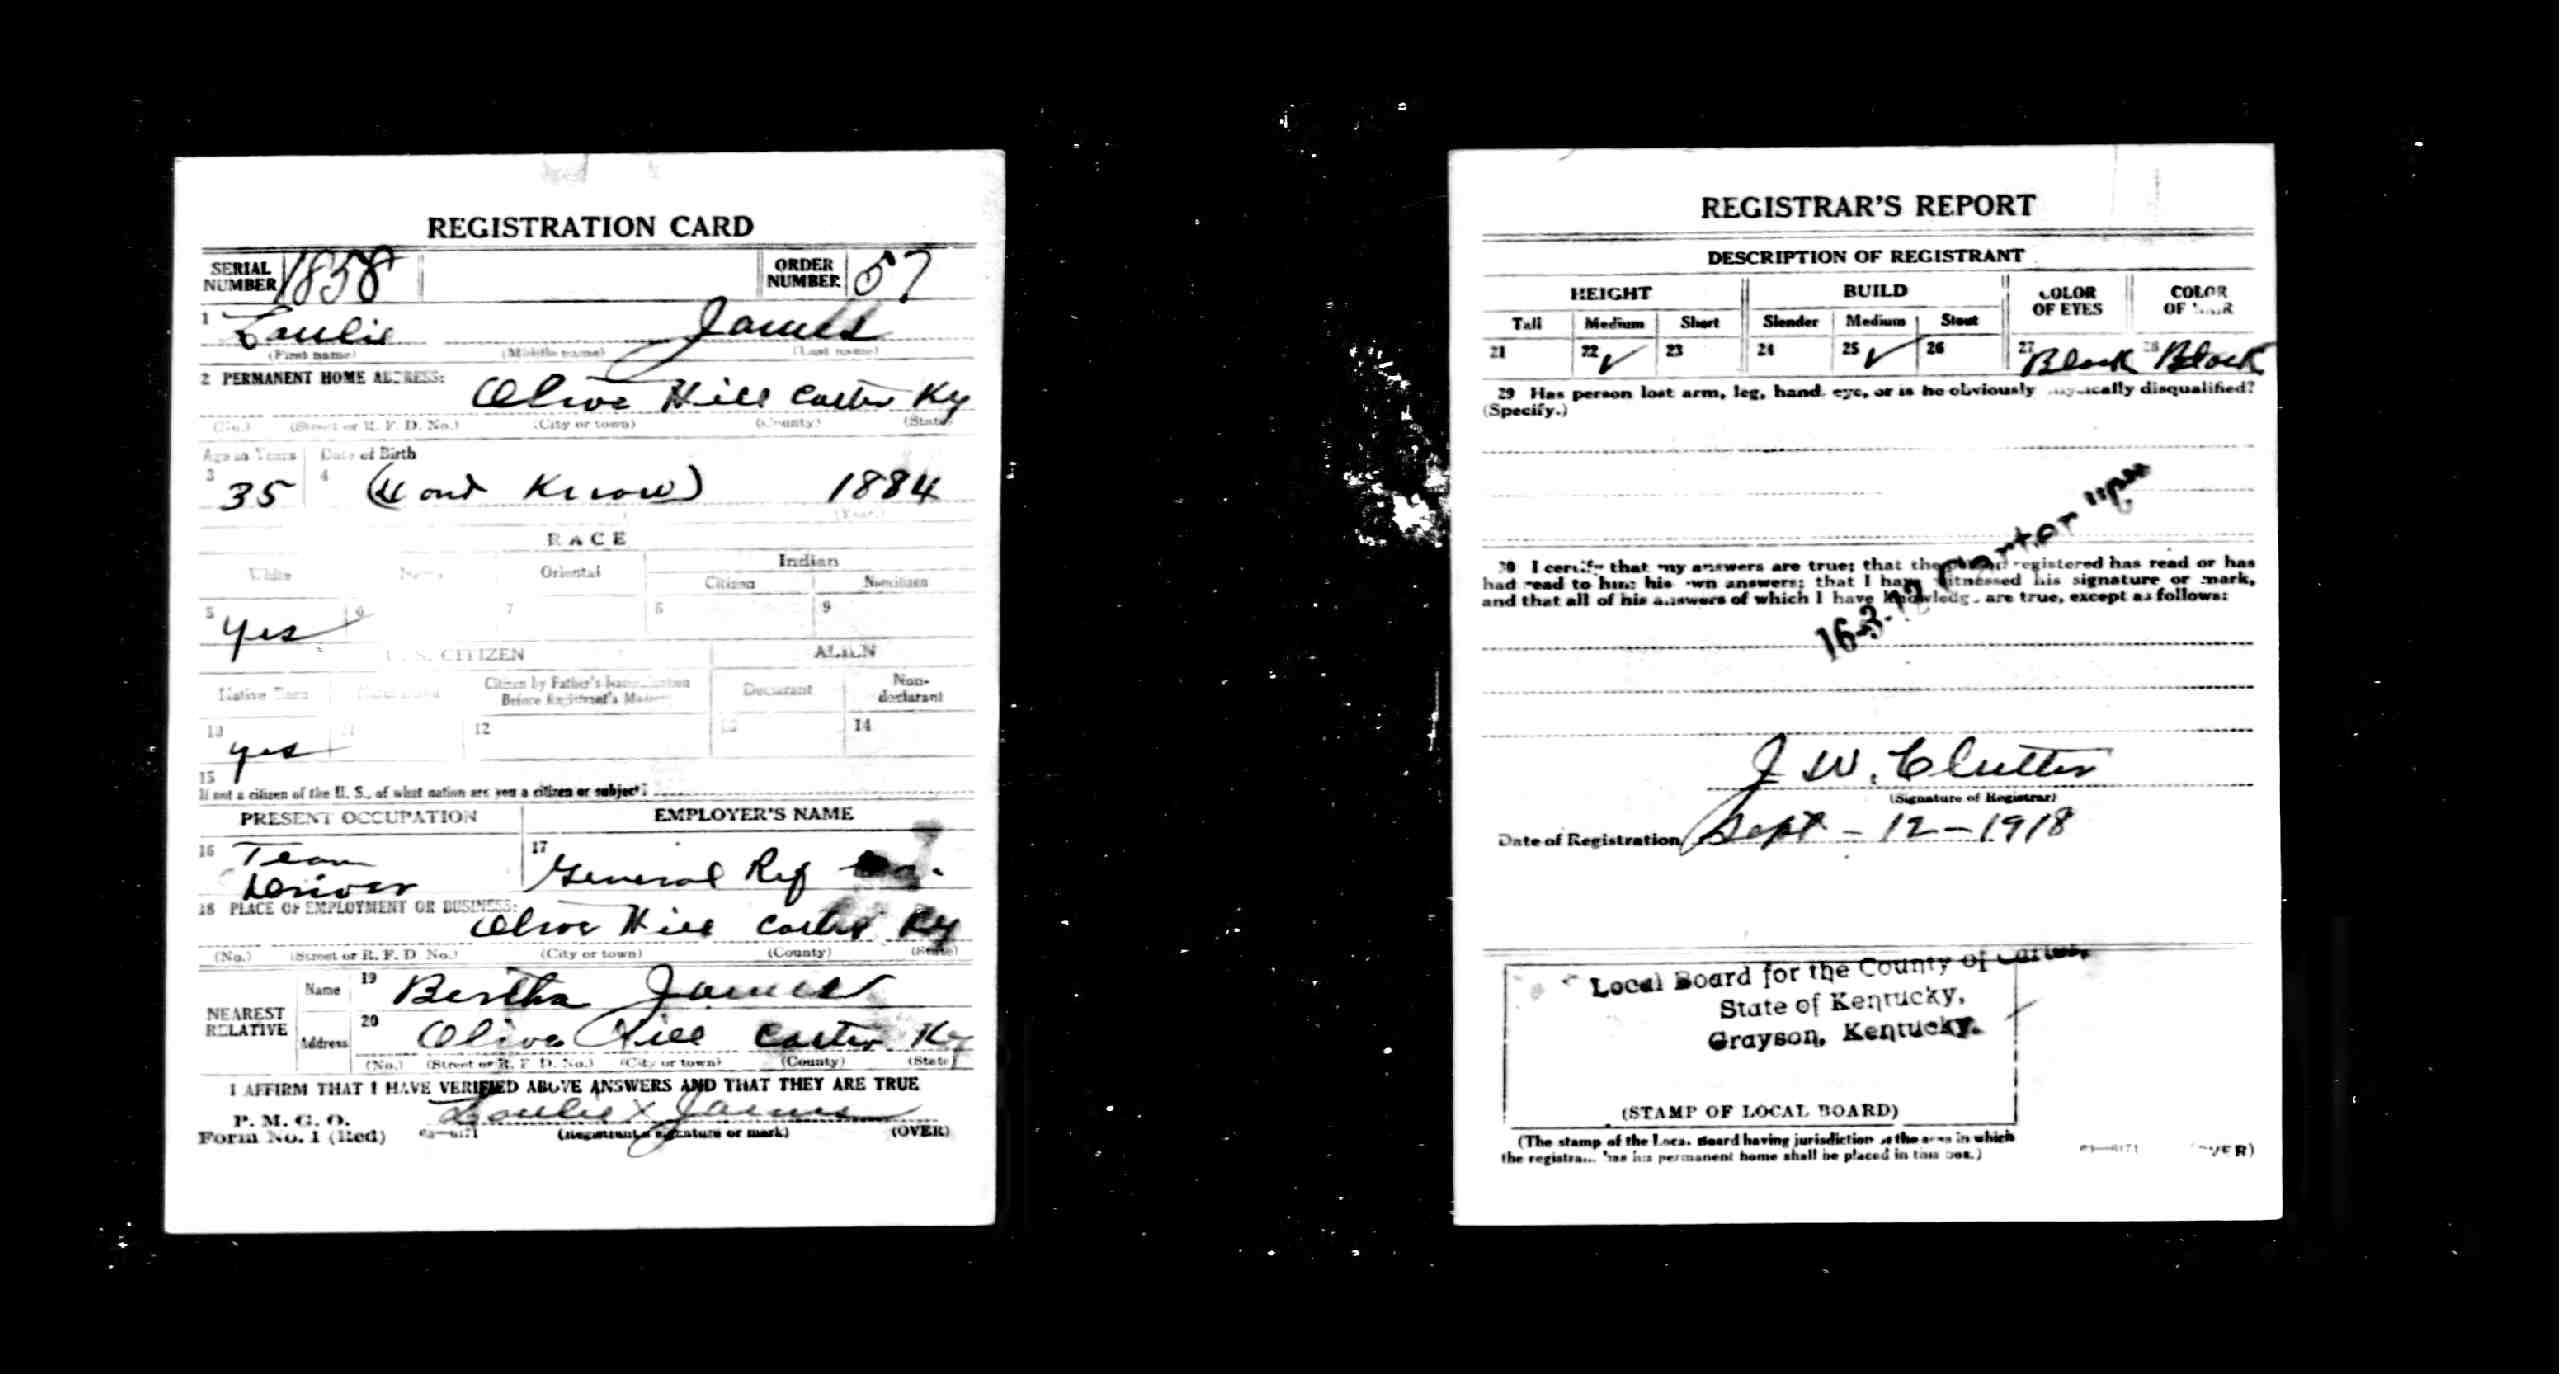 REGISTRATION CARD
SERIAL NUMBER 1858 ORDER NUMBER 57
1 Loulie James
(First name) (Middle name) (Last name)
2 PERMANENT HOME ADDRESS: Olive Hill Carter Ky
(No.) (Street or R. F. D. No.) (City or town) (County) (State)
Age in Years Date of Birth
3 35 4 (dont Know) 1884
(Year.)
RACE
White Negro Oriental Indian
Citizen Noncitizen
5 yes 6 7 8 9
U. S. CITIZEN ALIEN
Native Born Citizen by Father's Before Registrant's Declarant Non-declarant
10 yes 12 13 14
15 If not a citizen of the U. S., of what nation are you a citizen or subject?
PRESENT OCCUPATION EMPLOYER'S NAME
16 Team Driver 17 General Ref
18 PLACE OF EMPLOYMENT OR BUSINESS: Olive Hill Carter Ky
(No.) (Street or R. F. D. No.) (City or town) (County) (State)
NEAREST RELATIVE Name 19 Bertha James
Address 20 Olive Hill Carter Ky
(No.) (Street or R. F. D. No.) (City or town) (County) (State)
I AFFIRM THAT I HAVE VERIFIED ABOVE ANSWERS AND THAT THEY ARE TRUE
P. M. G. O.
Form No. 1 (Red) Loulie X James
(Registrant's signature or mark) (OVER)
REGISTRAR'S REPORT
DESCRIPTION OF REGISTRANT
HEIGHT BUILD COLOR OF EYES COLOR OF HAIR
Tall Medium Short Slender Medium Stout
21 22 ✓ 23 24 25 ✓ 26 27 Black 28 Black
29 Has person lost arm, leg, hand, eye, or is he obviously physically disqualified?
(Specify.)
30 I certify that my answers are true; that the person registered has read or has
had read to him his own answers; that I have witnessed his signature or mark,
and that all of his answers of which I have knowledge are true, except as follows:
J. W. Clutter
(Signature of Registrar)
Date of Registration Sept - 12 - 1918
Local Board for the County of Carter,
State of Kentucky,
Grayson, Kentucky.
(STAMP OF LOCAL BOARD)
(The stamp of the Local Board having jurisdiction of the area in which
the registrant has his permanent home shall be placed in this box.)
(OVER)